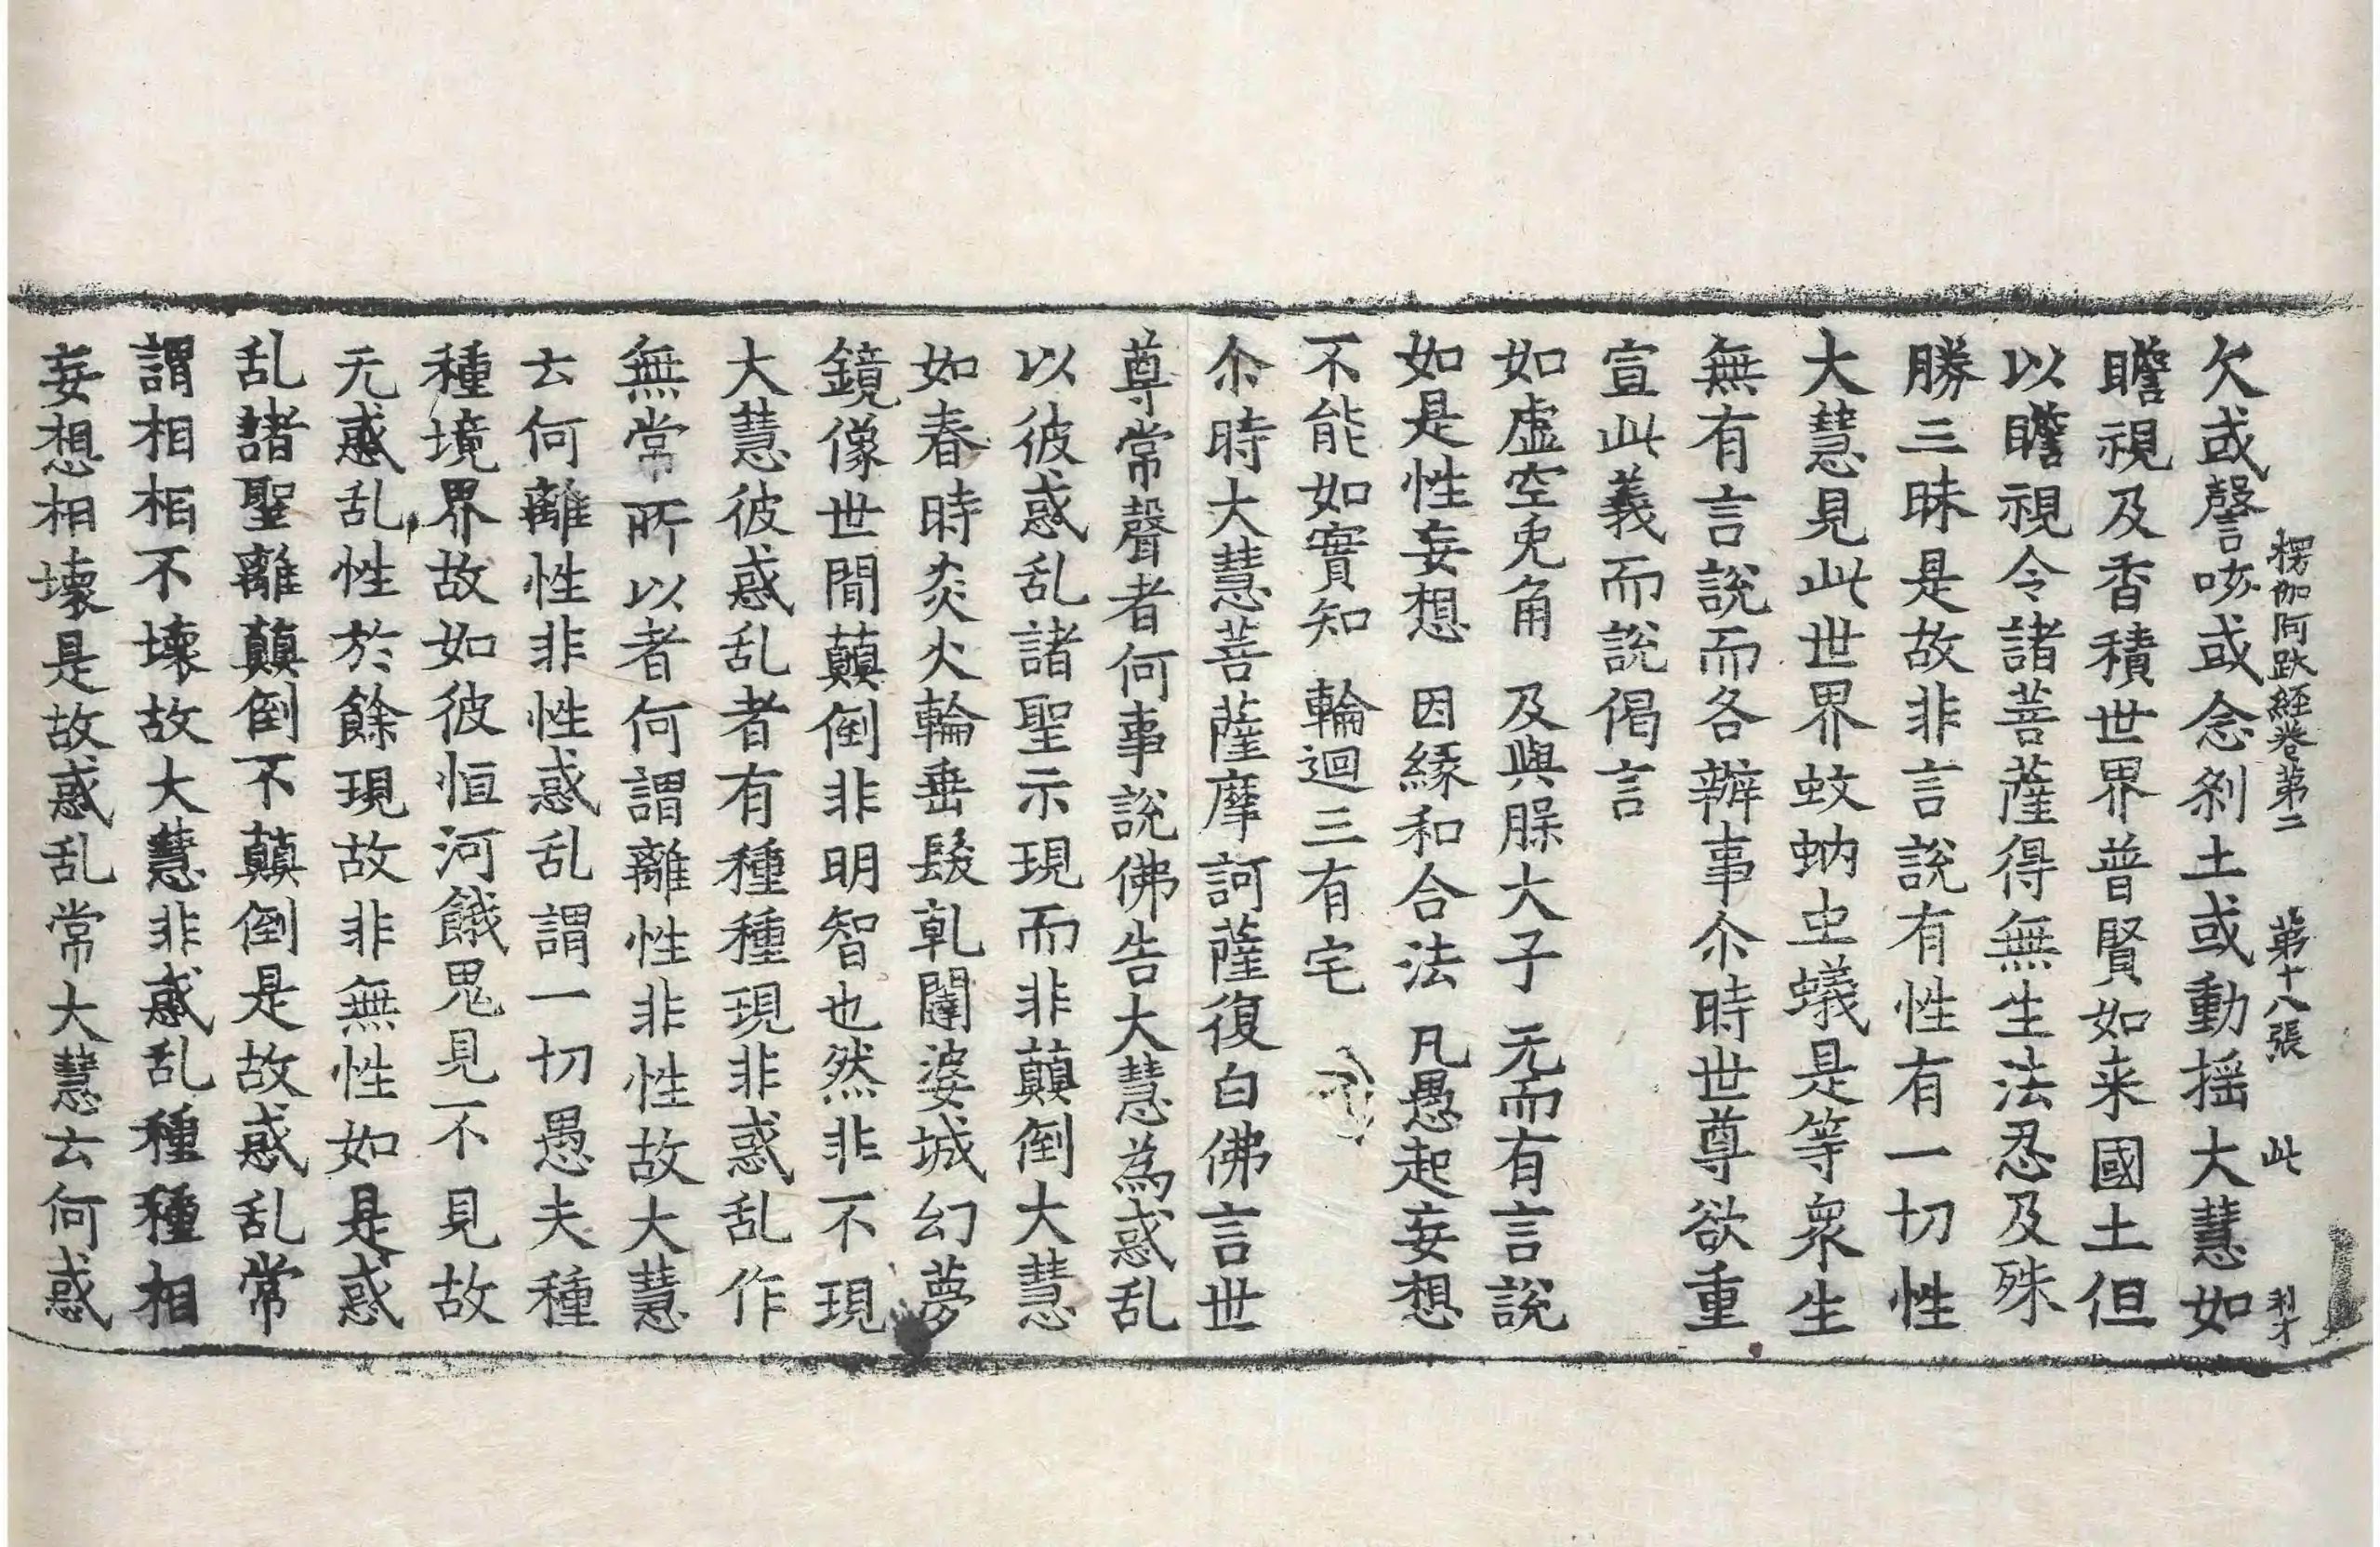 楞伽阿跋経巻第二 第十八張 此 利才
欠或謦咳或念刹土或動揺大慧如
瞻視及香積世界普賢如来國土但
以瞻視令諸菩薩得無生法忍及殊
勝三昧是故非言說有性有一切性
大慧見此世界蚊蚋虫蟻是等衆生
無有言說而各辦事尒時世尊欲重
宣此義而說偈言
如虚空兎角 及與脲大子 无而有言說
如是性妄想 因縁和合法 凡愚起妄想
不能如實知 輪迴三有宅
尒時大慧菩薩摩訶薩復白佛言世
尊常聲者何事說佛告大慧為惑乱
以彼惑乱諸聖示現而非顛倒大慧
如春時炎火輪垂髮乹闥婆城幻夢
鏡像世間顛倒非明智也然非不現
大慧彼惑乱者有種種現非惑乱作
無常所以者何謂離性非性故大慧
云何離性非性惑乱謂一切愚夫種
種境界故如彼恒河餓鬼見不見故
无惑乱性於餘現故非無性如是惑
乱諸聖離顛倒不顛倒是故惑乱常
謂相相不壊故大慧非惑乱種種相
妄想相壊是故惑乱常大慧云何惑